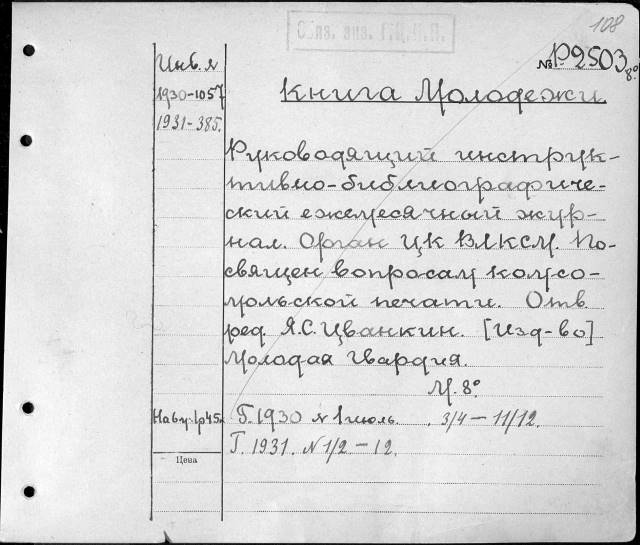 Обяз. экз. Г.Ц.К.П.
108
№ Р2503 8°
Инв. №
1930-1057
1931-385.
Книга Молодежи
Руководящий инструк-
тивно-библиографиче-
ский ежемесячный жур-
нал. Орган ЦК ВЛКСМ. По-
священ вопросам комсо-
мольской печати. Отв.
ред. Я.С. Цванкин. [Изд-во]
Молодая Гвардия.
М. 8°
Г. 1930 № 1 июль. 3/4 – 11/12.
Г. 1931. № 1/2 – 12.
Цена